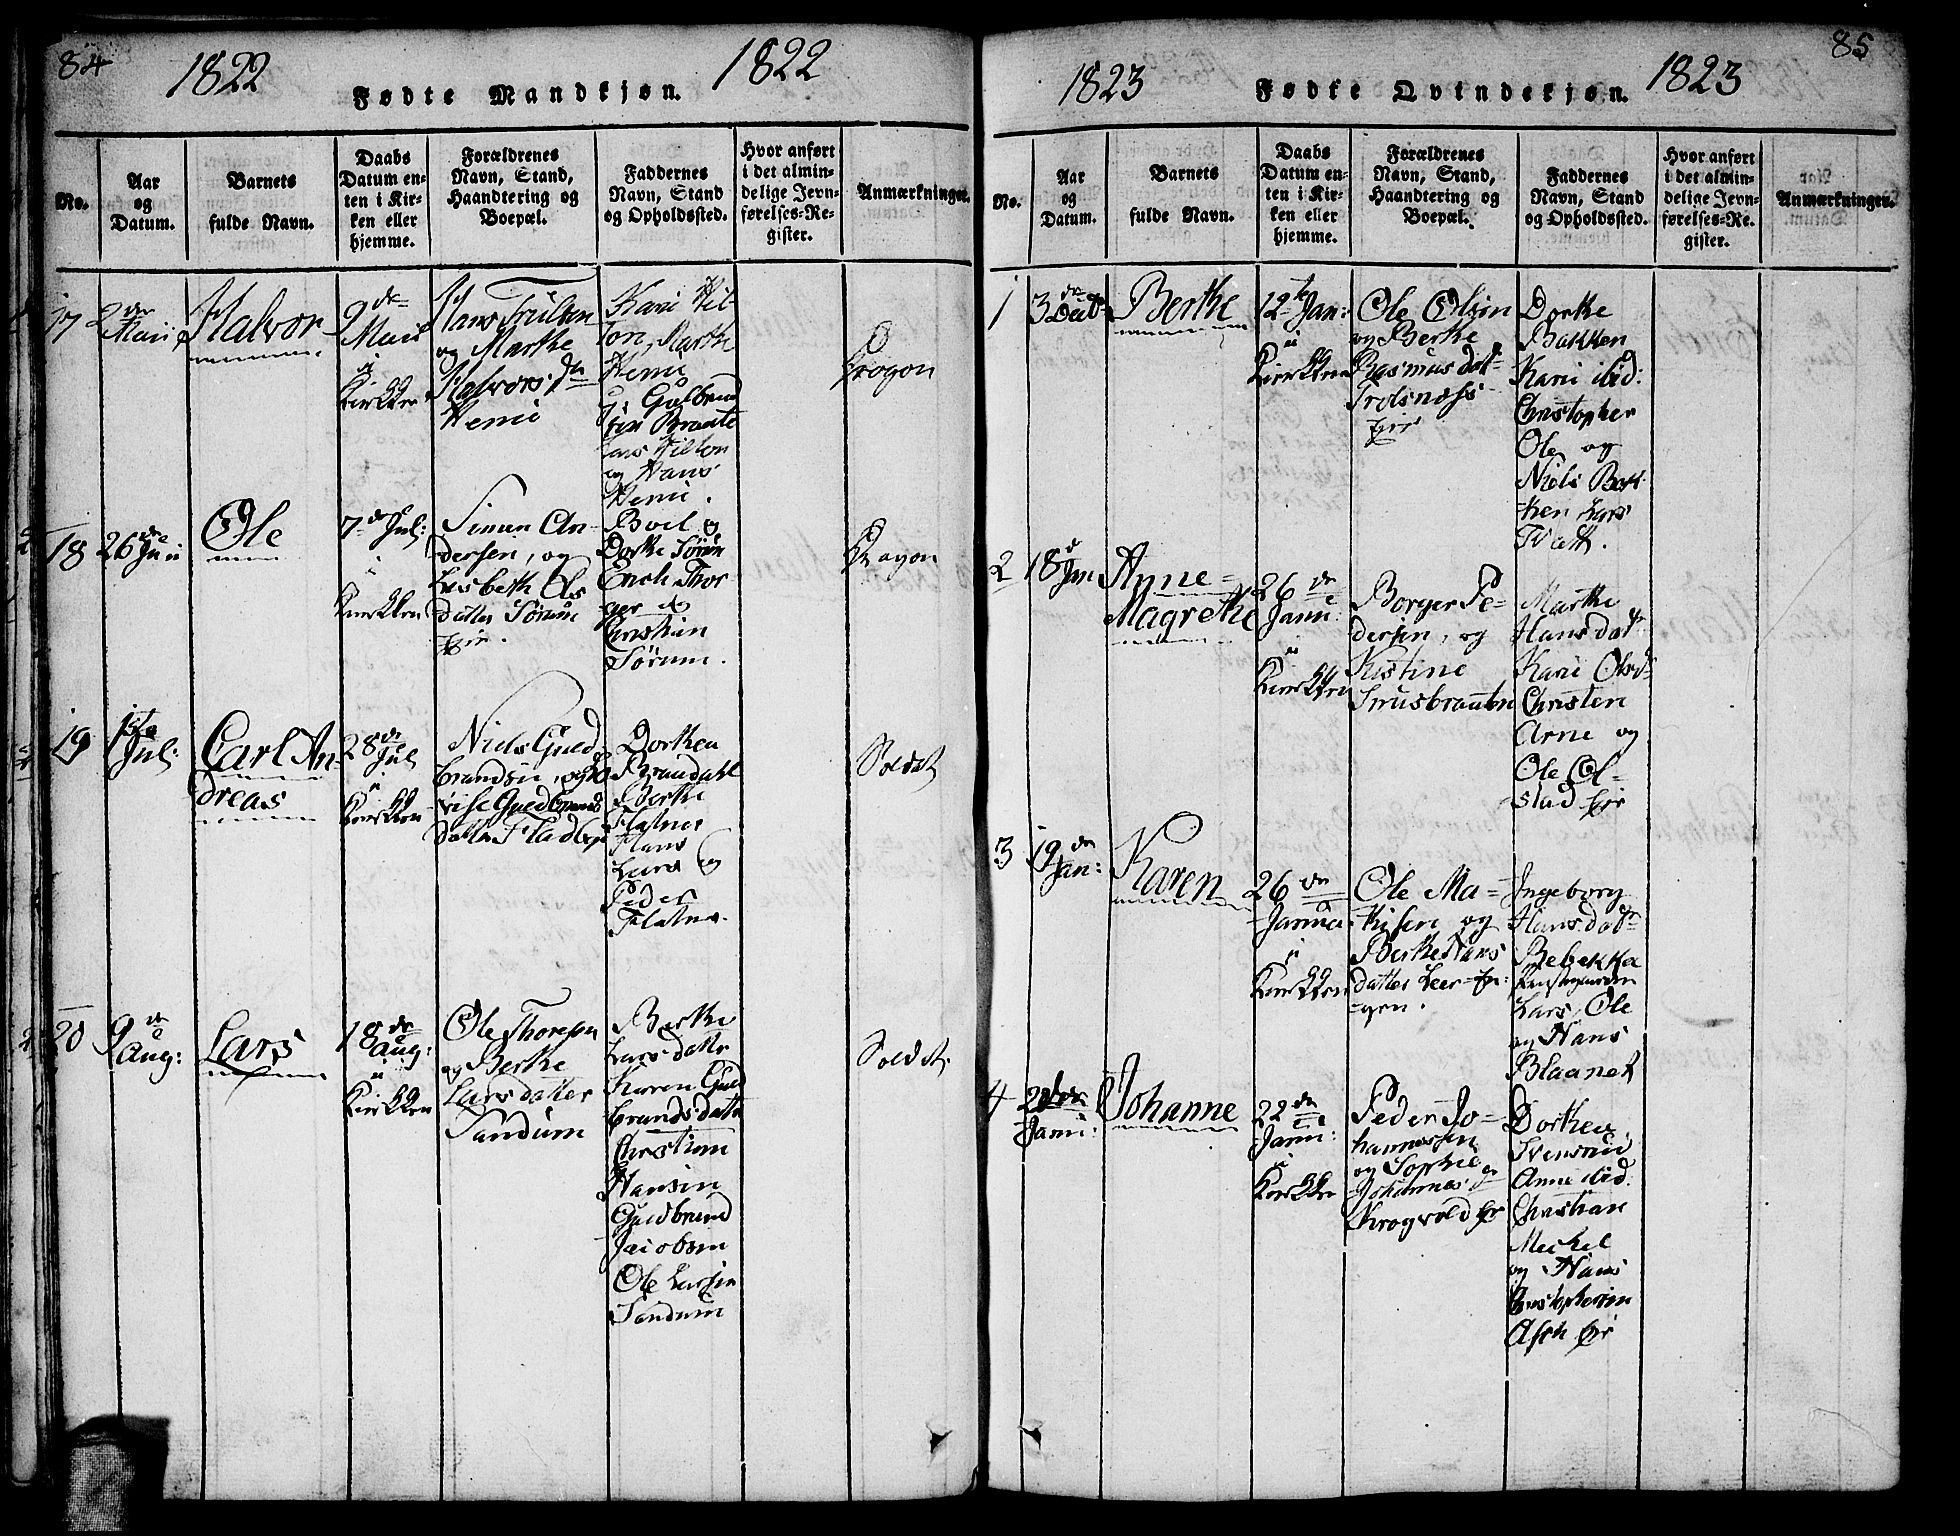 84
1822
1822
Fødte Mandkjøn.
No.
Aar
og
Datum.
Barnets
fulde Navn.
Daabs
Datum en-
ten i Kir-
ken eller
hjemme.
Forældrenes
Navn, Stand,
Haandtering og
Boepæl.
Faddernes
Navn, Stand
og Opholdssted.
Hvor anført
i det almin-
delige Jevn-
førelses-Re-
gister.
Anmærkninger.
17
2den
Maii
Halvor
9de
Maii
i
Kirkken
Hans
og Marthe
Halvors Dn
Hemie
Karie
Marthe
Hemie
og Gulbrand
Braate
Lars
og Hans
Hemie.
Dragon
18
26de
Juni
Ole
7de Jul:
i
Kirkken
Simen An-
dersen, og
Lisbeth Ols
datter Sørum
Eje.
Boel og
Dorthe Sørum
Erich Thor-
ger &
Christian
Sørum.
Dragon
19
1ste
Jul:
Carl An-
dreas
28de
Jul
i
Kirkken
Niels Guld-
brandsen, og
Guldbrands
datter Fladbye
Dorthea
Brandahl
Berthe
Flatner
Hans
Lars og
Peder
Flatner.
Soldat
20
9de
Aug:
Lars
18de
Aug:
i
Kirkken
Ole Thoresen
og Berthe
Larsdatter
Sandum
Berthe
Larsdatter
Karen Guld
brandsdatter
Christian
Hansen
Guldbrand
Jacobsen
Ole Larsen
Sandum
Soldat
85
1823
1823
Fødte Qvindekjøn.
No.
Aar
og
Datum.
Barnets
fulde Navn.
Daabs
Datum en-
ten i Kir-
ken eller
hjemme.
Forældrenes
Navn, Stand,
Haandtering og
Boepæl.
Faddernes
Navn, Stand
og Opholdssted.
Hvor anført
i det almin-
delige Jevn-
førelses-Re-
gister.
Anmærkninger.
1
3de
Berthe
12te Jan:
i
Kirkken
Ole Olsen
og Berthe
Rasmusdat-
Trosnæss
Eje
Dorthe
Bakken
Karie ibid:
Christopher
Ole og
Niels Bak-
ken Lars
Tvætt.
2
18d
Jan
Anne
Magrethe
26de
Janu:
i
Kirkken
Borger Pe-
dersen, og
Kistine
Marthe
Hansdatr
Karie Olsd
Christen
Arne og
Ole Ol-
stad Eje
3
19de
Jan:
Karen
26de
Janua
i
Kirkken
Ole Ma-
thisen og
Berthe Lars
datter Leer-En-
gen.
Ingeborg
Hansdatr
Rebekka
Lars, Ole
og Hans
Blaanet
4
Janu:
Johanne
22de
Janu:
i
Kirkken
Peder Jo-
hannessen
og Sophie
Johannes
Krogvold Eje
Dorthea
Svensrud
Anne ibid:
Christian
Mickel
og Hans
Christophersen
Asch Eje